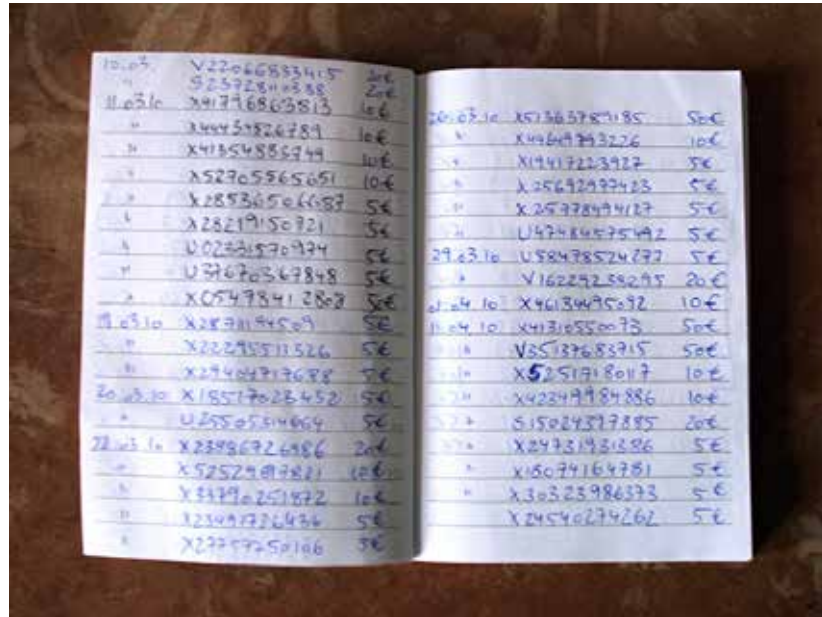 10.03 V22066833415 20€
" S23728110388 20€
11.03.10 X41796863813 10€
" X44434826789 10€
" X41354885749 10€
" X52705565651 10€
" X28536506687 5€
" X28219150721 5€
" U02331570974 5€
" U37670367848 5€
" X054798412808 50€
19.03.10 X28711194509 5€
" X22295511526 5€
" X29404717688 5€
20.03.10 X18517023452 5€
" U25505314664 5€
22.03.10 X23986726986 20€
" X52529897821 10€
" X33790251872 10€
" X23491726436 5€
" X27757750106 5€
26.03.10 X51363789185 50€
" X44649793226 10€
" X19417223927 5€
" X25692977423 5€
" X25778494127 5€
" U47484575492 5€
29.03.10 U58478524277 5€
" V16229238295 20€
01.04.10 X46134495092 10€
11.04.10 X41310550073 50€
" V35137683715 50€
" X52517180117 10€
" X42349984886 10€
" S15024397885 20€
" X24731931386 5€
" X18074164781 5€
" X30323986373 5€
" X24540274262 5€